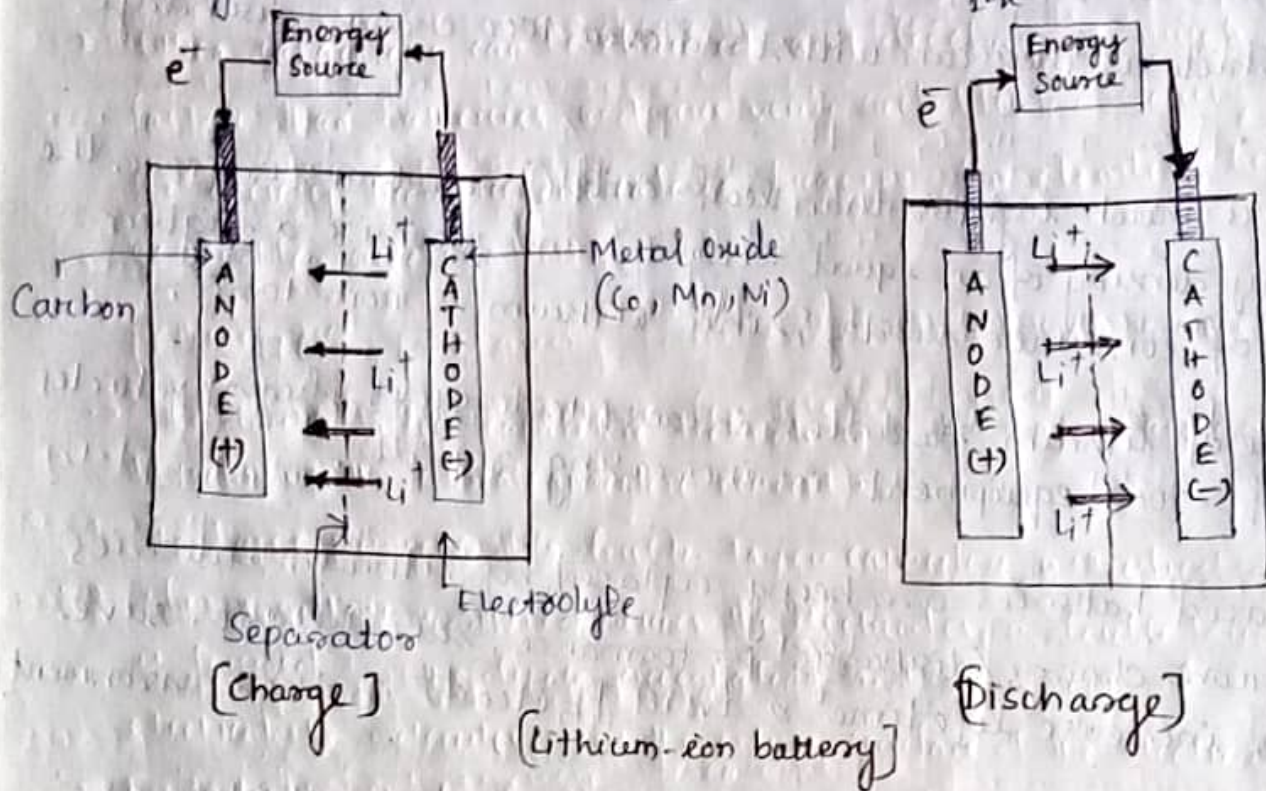 Energy
Source
e⁺
Li⁺
Li⁺
Li⁺
Carbon
ANODE (+)
CATHODE (-)
Metal oxide
(Co, Mn, Ni)
Separator
Electrolyte
[Charge]
Energy
Source
e⁻
Li⁺
Li⁺
Li⁺
ANODE (+)
CATHODE (-)
[Discharge]
[Lithium-ion battery]